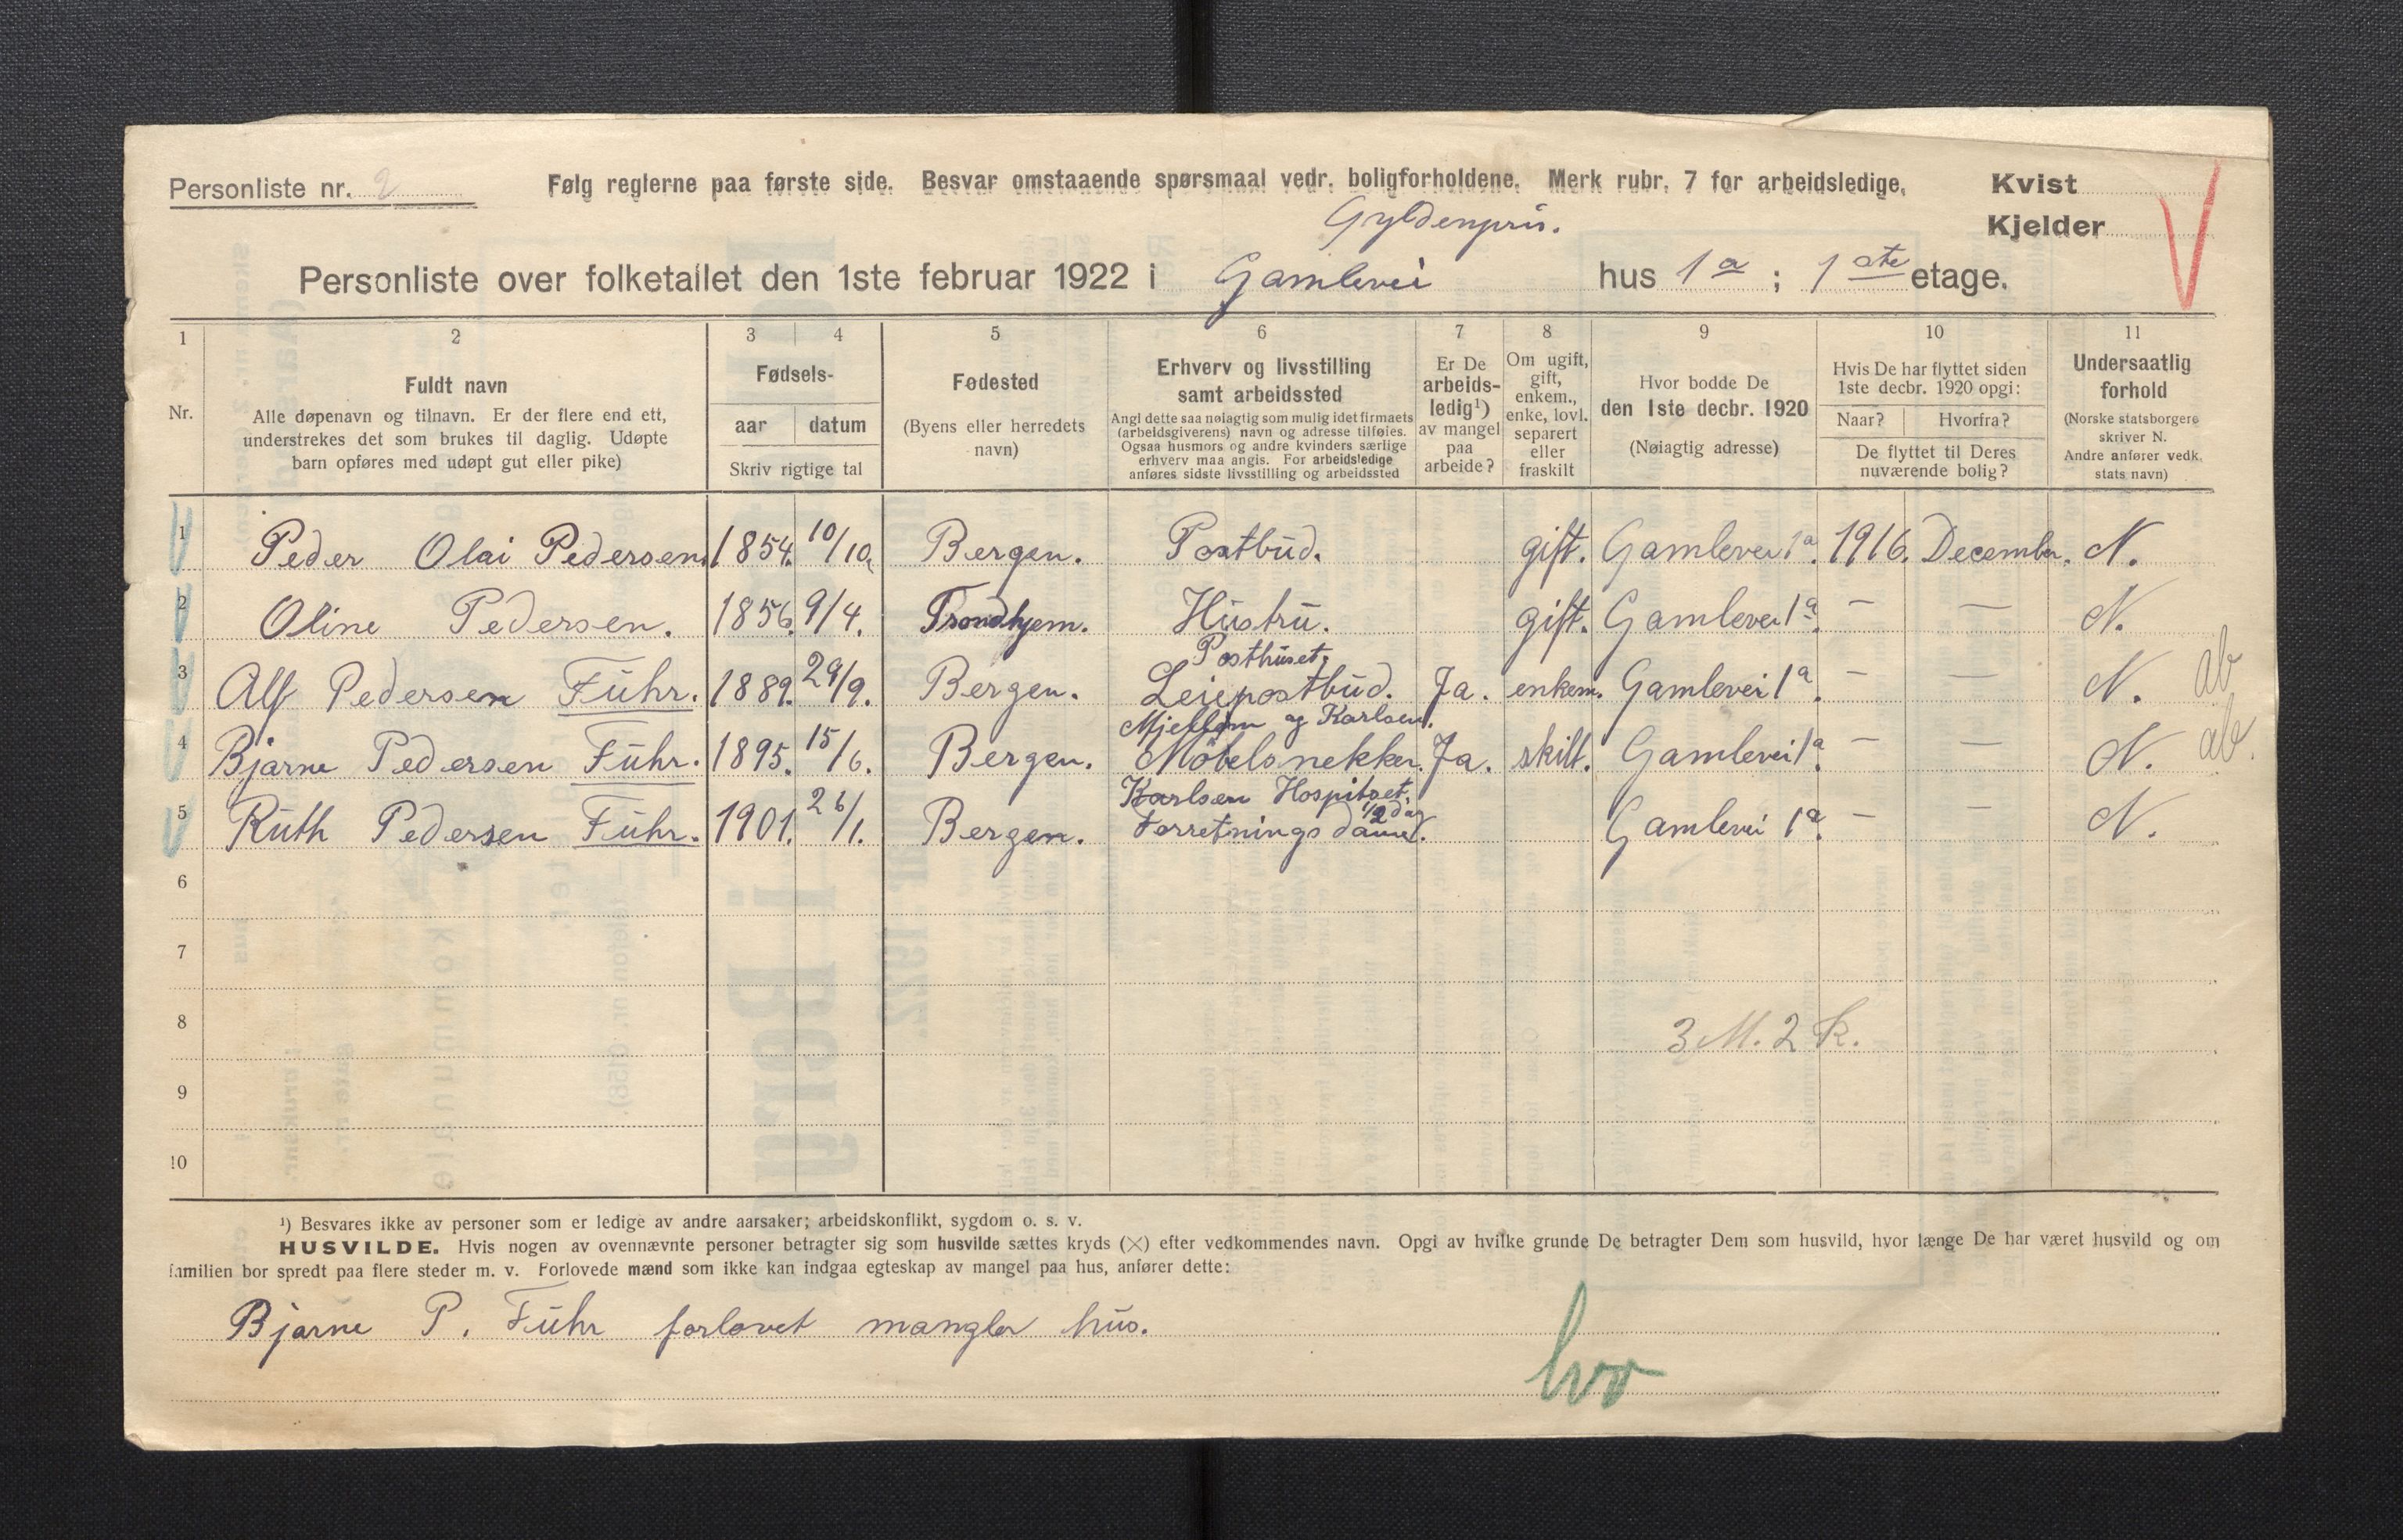 Personliste nr. 2
Følg reglerne paa første side. Besvar omstaaende spørsmaal vedr. boligforholdene. Merk rubr. 7 for arbeidsledige.
Kvist
Kjelder
Gyldenpris.
Personliste over folketallet den 1ste februar 1922 i Gamlevei hus 1a ; 1ste etage.
1 2 3 4 5 6 7 8 9 10 11
Nr.
Fuldt navn
Alle døpenavn og tilnavn. Er der flere end ett,
understrekes det som brukes til daglig. Udøpte
barn opføres med udøpt gut eller pike)
Fødsels-
aar datum
Skriv rigtige tal
Fødested
(Byens eller herredets
navn)
Erhverv og livsstilling
samt arbeidssted
Angi dette saa nøiagtig som mulig idet firmaets
(arbeidsgiverens) navn og adresse tilføies.
Ogsaa husmors og andre kvinders særlige
erhverv maa angis. For arbeidsledige
anføres sidste livsstilling og arbeidssted
Er De
arbeids-
ledig¹)
av mangel
paa
arbeide?
Om ugift,
gift,
enkem.,
enke, lovl.
separert
eller
fraskilt
Hvor bodde De
den 1ste decbr. 1920
(Nøiagtig adresse)
Hvis De har flyttet siden
1ste decbr. 1920 opgi:
Naar? Hvorfra?
De flyttet til Deres
nuværende bolig?
Undersaatlig
forhold
(Norske statsborgere
skriver N.
Andre anfører vedk.
stats navn)
1 Peder Olai Pedersen. 1854. 10/10. Bergen. Postbud. gift. Gamlevei 1a. 1916. December. N.
2 Oline Pedersen. 1856. 9/4. Trondhjem. Hustru. gift. Gamlevei 1a. — — N.
Posthuset.
3 Alf Pedersen Fuhr. 1889. 29/9. Bergen. Leiepostbud. Ja. enkem. Gamlevei 1a. — — N. ab
Mjellem og Karlsen.
4 Bjarne Pedersen Fuhr. 1895. 15/6. Bergen. Møbelsnekker. Ja. skilt. Gamlevei 1a. — — N. ab.
Karlsen Hospitset.
1/2 dag
5 Ruth Pedersen Fuhr. 1901. 26/1. Bergen. Forretningsdame. Gamlevei 1a. — — N.
6
7
8 3 M. 2 K.
9
10
¹) Besvares ikke av personer som er ledige av andre aarsaker; arbeidskonflikt, sygdom o. s. v.
HUSVILDE. Hvis nogen av ovennævnte personer betragter sig som husvilde sættes kryds (×) efter vedkommendes navn. Opgi av hvilke grunde De betragter Dem som husvild, hvor længe De har været husvild og om
familien bor spredt paa flere steder m. v. Forlovede mænd som ikke kan indgaa egteskap av mangel paa hus, anfører dette:
Bjarne P. Fuhr forlovet mangler hus.